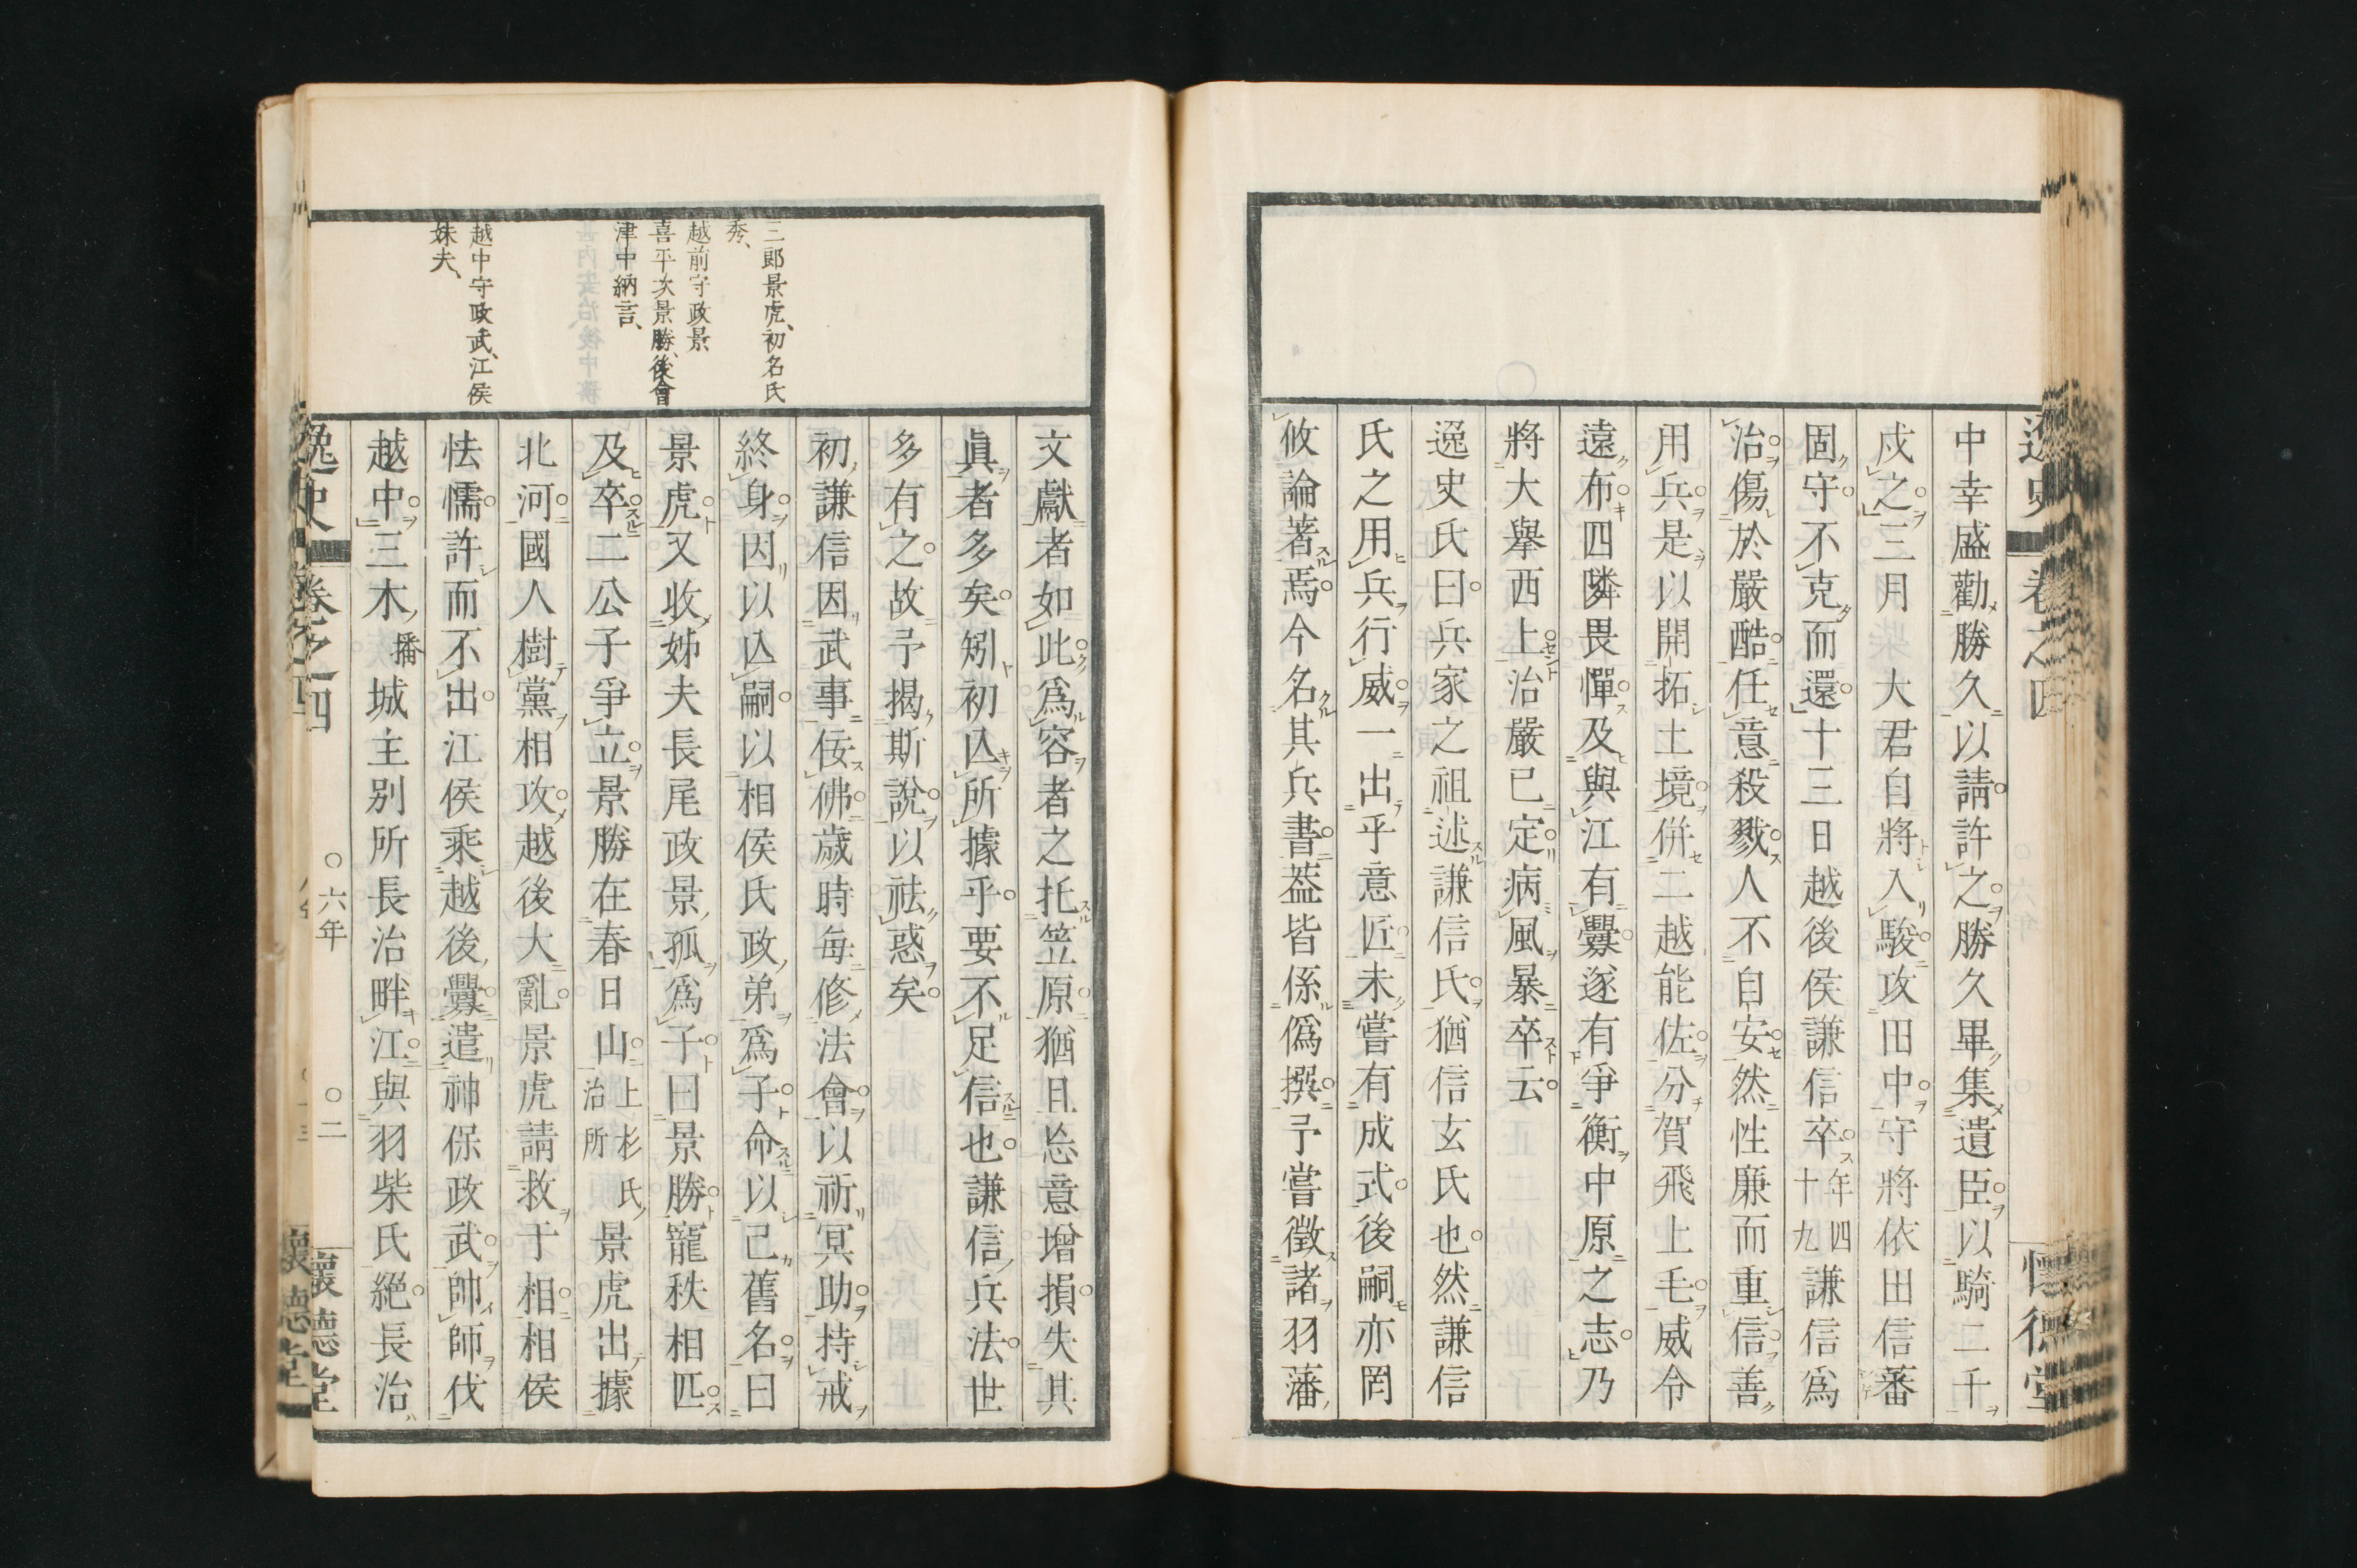 中幸盛勸勝久以請許之勝久畢集遺臣以騎二千
戍之三月大君自將入駿攻田中守將依田信蕃
固守不克而還十三日越後侯謙信卒年四十九謙信爲
治傷於嚴酷任意殺戮人不自安然性廉而重信善
用兵是以開拓土境併二越能佐分賀飛上毛威令
遠布四隣畏憚及與江有釁遂有爭衡中原之志乃
將大擧西上治嚴已定病風暴卒云
逸史氏曰兵家之祖述謙信氏猶信玄氏也然謙信
氏之用兵行威一出乎意匠未嘗有成式後嗣亦罔
攸論著焉今名其兵書葢皆係僞撰予嘗徵諸羽藩
三郎景虎、初名氏
秀、
越前守政景
喜平次景勝、後會
津中納言、
越中守政武、江侯
妹夫、
文獻者如此爲容者之托笠原猶且恣意增損失其
眞者多矣矧初亾所據乎要不足信也謙信兵法世
多有之故予揭斯說以祛惑矣
初謙信因武事佞佛歲時每修法會以祈冥助持戒
終身因以亾嗣以相侯氏政弟爲子命以己舊名曰
景虎又收姊夫長尾政景孤爲子曰景勝寵秩相匹
及卒二公子爭立景勝在春日山上杉氏治所景虎出據
北河國人樹黨相攻越後大亂景虎請救于相相侯
怯懦許而不出江侯乘越後釁遣神保政武帥師伐
越中三木播城主別所長治畔江與羽柴氏絕長治
逸史 卷之四 ○六年 ○二 懷德堂